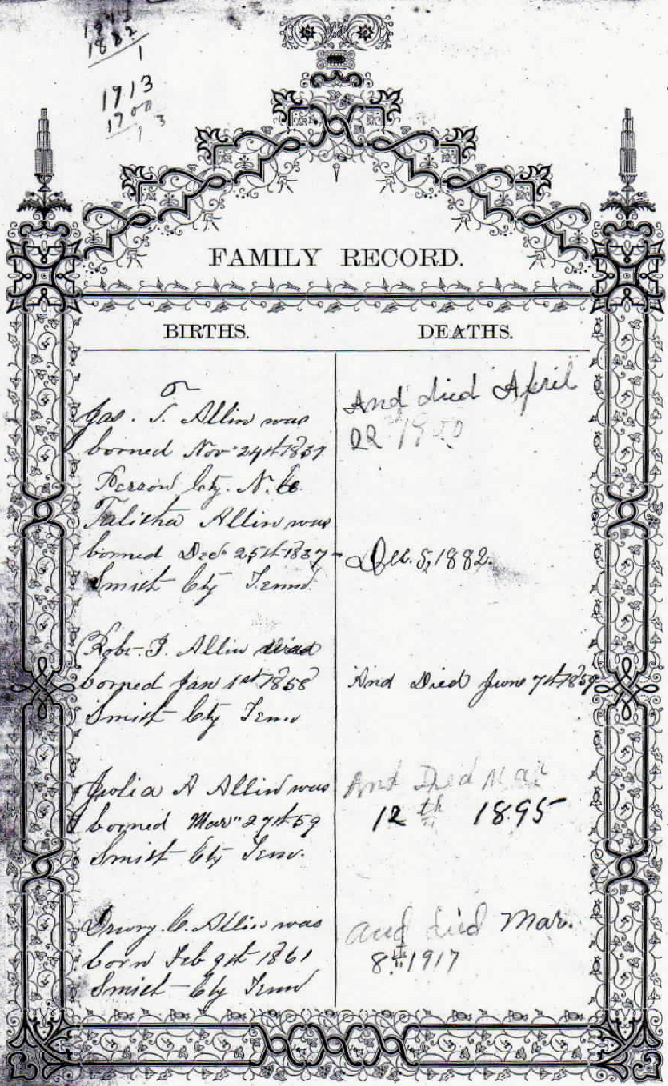 1882
1
1913
1700
1 3
FAMILY RECORD.
BIRTHS.
DEATHS.
Jas. T. Allin was
borned Nov 24th 1837
Cty. N. Co
Talitha Allin was
borned Dec 25th 1837 -
Smith Cty Tenn
And died April
22
Dec. 8, 1882.
Robt. P. Allin was
borned Jan 1st 1858
Smith Cty Tenn
And Died June 7th 1859
Julia A Allin was
borned Mar 27th 59
Smith Cty Tenn.
And Died Mar
12th 1895
C. Allin was
born Feb 9th 1861
Smith Cty Tenn
and died Mar.
8th 1917